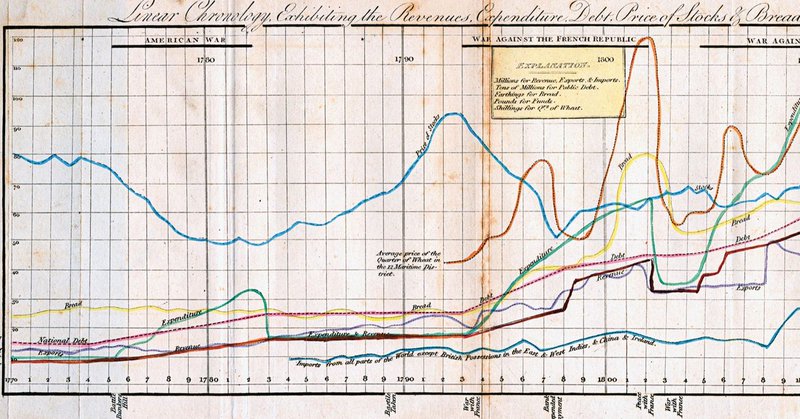 Linear Chronology, Exhibiting the Revenues, Expenditure, Debt, Price of Stocks & Bread
AMERICAN WAR
WAR AGAINST THE FRENCH REPUBLIC
WAR AGAIN
1780
1790
1800
EXPLANATION.
Millions for Revenue, Exports & Imports.
Tens of Millions for Public Debt.
Farthings for Bread.
Pounds for Funds.
Shillings for Qrs of Wheat.
Price of Stocks
Bread
Expenditure
Stock
Bread
Average price of the
Quarter of Wheat in
the 12 Maritime Dis-
trict.
Expenditure
Debt
Debt
Revenue
Exports
Bread
Expenditure
Bread
Debt
National Debt
Exports
Revenue
Expenditure & Revenue
Imports from all parts of the World except British Possessions in the East & West Indies, & China & Ireland.
1770 1 2 3 4 5 6 7 8 9 1780 1 2 3 4 5 6 7 8 9 1790 1 2 3 4 5 6 7 8 9 1800 1 2 3 4 5 6 7 8 9
Bunkers
Hill
Bastile
Taken
War
with
France
Bank
Peace
with
France
War
with
France